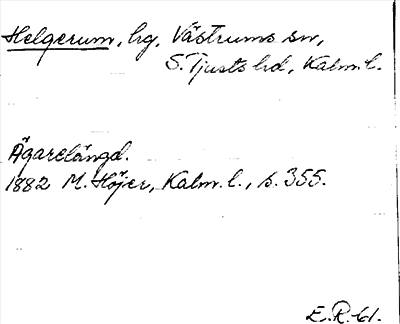 Helgerum, hg, Västrums sn,
S. Tjusts hd, Kalm. l.
Ägarelängd.
1882 M. Höjer, Kalm. l., s. 355.
E.R. 61.